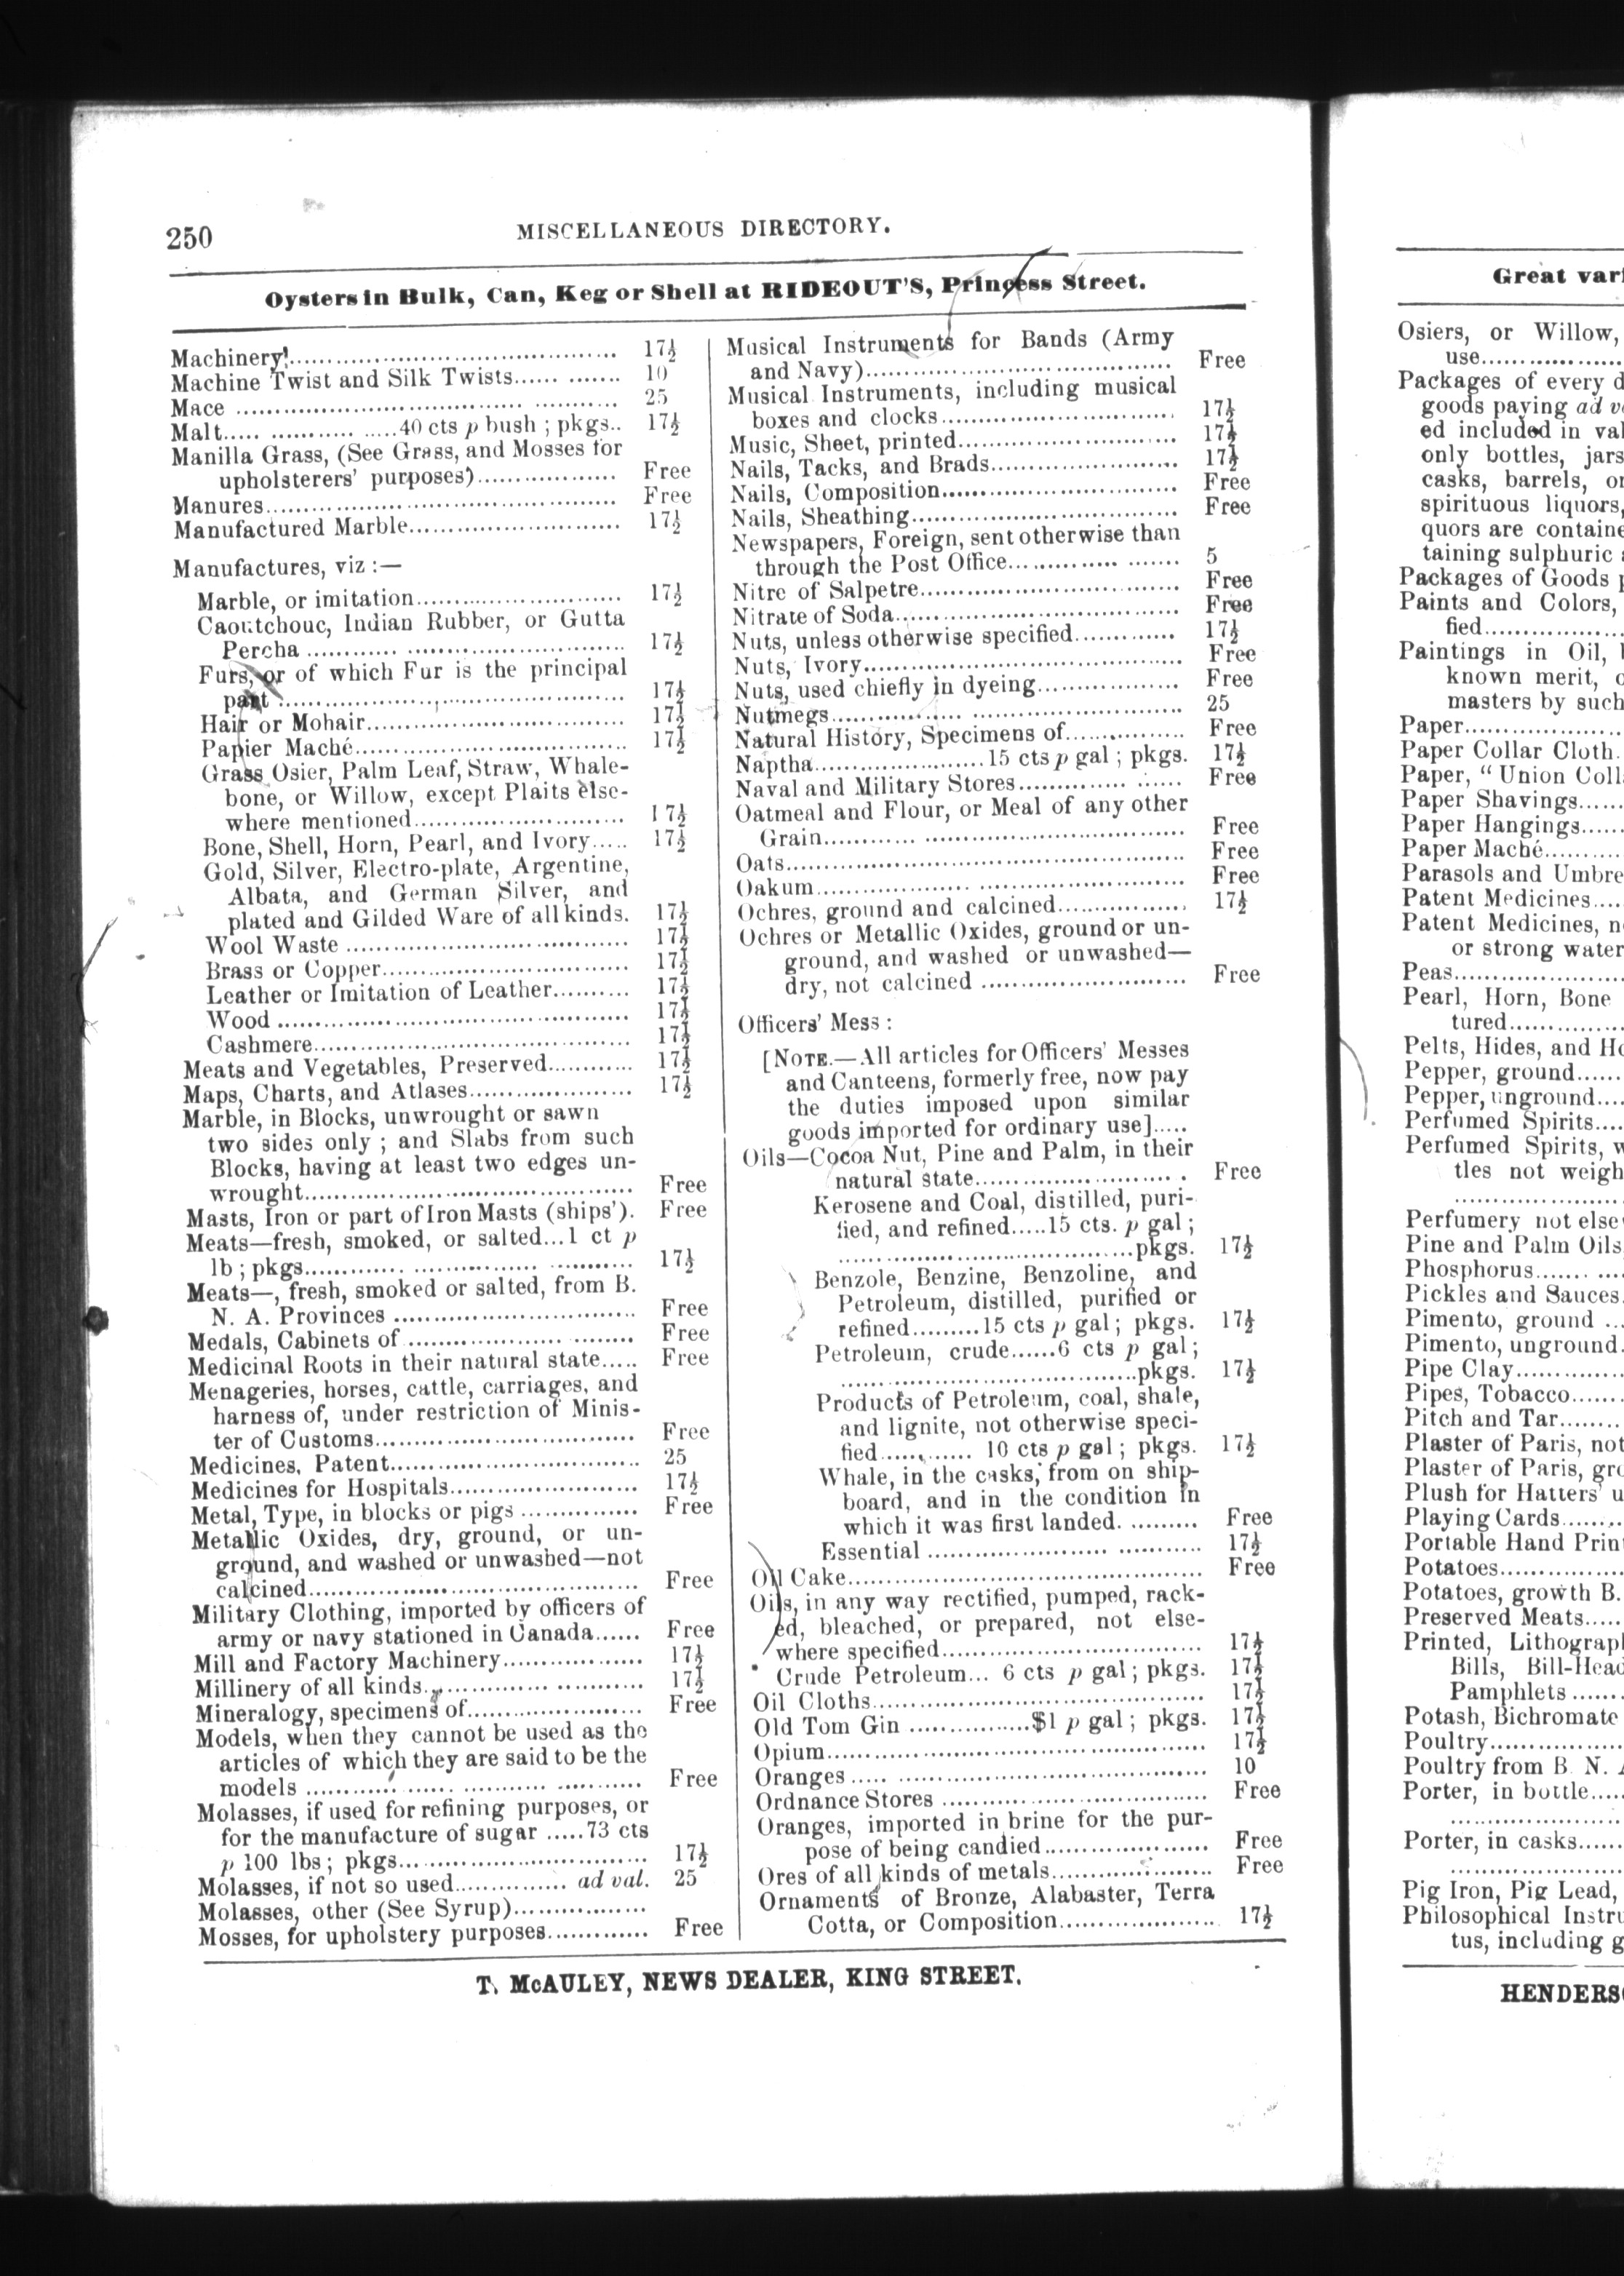 250
MISCELLANEOUS DIRECTORY.
Oysters in Bulk, Can, Keg or Shell at RIDEOUT'S, Princess Street.
Machinery........................................ 17½
Machine Twist and Silk Twists............. 10
Mace ........................................ 25
Malt..................40 cts p bush ; pkgs.. 17½
Manilla Grass, (See Grass, and Mosses for
upholsterers' purposes).................. Free
Manures........................................ Free
Manufactured Marble............................ 17½
Manufactures, viz :—
Marble, or imitation........................... 17½
Caoutchouc, Indian Rubber, or Gutta
Percha ........................................ 17½
Furs, or of which Fur is the principal
part ........................................ 17½
Hair or Mohair.................................. 17½
Papier Maché.................................... 17½
Grass Osier, Palm Leaf, Straw, Whale-
bone, or Willow, except Plaits else-
where mentioned............................ 17½
Bone, Shell, Horn, Pearl, and Ivory..... 17½
Gold, Silver, Electro-plate, Argentine,
Albata, and German Silver, and
plated and Gilded Ware of all kinds. 17½
Wool Waste .................................... 17½
Brass or Copper................................ 17½
Leather or Imitation of Leather.......... 17½
Wood ........................................ 17½
Cashmere........................................ 17½
Meats and Vegetables, Preserved............ 17½
Maps, Charts, and Atlases..................... 17½
Marble, in Blocks, unwrought or sawn
two sides only ; and Slabs from such
Blocks, having at least two edges un-
wrought........................................ Free
Masts, Iron or part of Iron Masts (ships'). Free
Meats—fresh, smoked, or salted...1 ct p
lb ; pkgs........................................ 17½
Meats—, fresh, smoked or salted, from B.
N. A. Provinces ............................... Free
Medals, Cabinets of ............................. Free
Medicinal Roots in their natural state..... Free
Menageries, horses, cattle, carriages, and
harness of, under restriction of Minis-
ter of Customs.................................. Free
Medicines, Patent................................ 25
Medicines for Hospitals......................... 17½
Metal, Type, in blocks or pigs ............... Free
Metallic Oxides, dry, ground, or un-
ground, and washed or unwashed—not
calcined........................................ Free
Military Clothing, imported by officers of
army or navy stationed in Canada...... Free
Mill and Factory Machinery.................. 17½
Millinery of all kinds........................... 17½
Mineralogy, specimens of....................... Free
Models, when they cannot be used as the
articles of which they are said to be the
models ........................................ Free
Molasses, if used for refining purposes, or
for the manufacture of sugar .....73 cts
p 100 lbs ; pkgs................................ 17½
Molasses, if not so used............... ad val. 25
Molasses, other (See Syrup).................
Mosses, for upholstery purposes............. Free
Musical Instruments for Bands (Army
and Navy)...................................... Free
Musical Instruments, including musical
boxes and clocks............................. 17½
Music, Sheet, printed........................... 17½
Nails, Tacks, and Brads........................ 17½
Nails, Composition.............................. Free
Nails, Sheathing................................. Free
Newspapers, Foreign, sent otherwise than
through the Post Office...................... 5
Nitre of Salpetre................................. Free
Nitrate of Soda................................... Free
Nuts, unless otherwise specified............. 17½
Nuts, Ivory........................................ Free
Nuts, used chiefly in dyeing.................. Free
Nutmegs........................................ 25
Natural History, Specimens of................ Free
Naptha.......................15 cts p gal ; pkgs. 17½
Naval and Military Stores..................... Free
Oatmeal and Flour, or Meal of any other
Grain........................................ Free
Oats........................................ Free
Oakum........................................ Free
Ochres, ground and calcined................. 17½
Ochres or Metallic Oxides, ground or un-
ground, and washed or unwashed—
dry, not calcined ........................... Free
Officers' Mess :
[NOTE.—All articles for Officers' Messes
and Canteens, formerly free, now pay
the duties imposed upon similar
goods imported for ordinary use].....
Oils—Cocoa Nut, Pine and Palm, in their
natural state............................. Free
Kerosene and Coal, distilled, puri-
fied, and refined.....15 cts. p gal ;
........................................pkgs. 17½
Benzole, Benzine, Benzoline, and
Petroleum, distilled, purified or
refined.........15 cts p gal ; pkgs. 17½
Petroleum, crude......6 cts p gal ;
........................................pkgs. 17½
Products of Petroleum, coal, shale,
and lignite, not otherwise speci-
fied............ 10 cts p gal ; pkgs. 17½
Whale, in the casks, from on ship-
board, and in the condition in
which it was first landed. ......... Free
Essential ................................... 17½
Oil Cake........................................ Free
Oils, in any way rectified, pumped, rack-
ed, bleached, or prepared, not else-
where specified................................ 17½
Crude Petroleum... 6 cts p gal ; pkgs. 17½
Oil Cloths........................................ 17½
Old Tom Gin ................$1 p gal ; pkgs. 17½
Opium........................................ 17½
Oranges ........................................ 10
Ordnance Stores ................................ Free
Oranges, imported in brine for the pur-
pose of being candied...................... Free
Ores of all kinds of metals..................... Free
Ornaments of Bronze, Alabaster, Terra
Cotta, or Composition..................... 17½
T. McAULEY, NEWS DEALER, KING STREET.
Great
Osiers, or Willow,
use....................
Packages of every
goods paying ad
ed included in
only bottles, jars
casks, barrels, or
spirituous liquors,
quors are
taining sulphuric
Packages of Goods
Paints and Colors,
fied....................
Paintings in Oil,
known merit,
masters by such
Paper....................
Paper Collar Cloth.
Paper, "Union
Paper Shavings......
Paper Hangings.....
Paper Maché..........
Parasols and
Patent Medicines....
Patent Medicines,
or strong
Peas....................
Pearl, Horn, Bone
tured...............
Pelts, Hides, and
Pepper, ground......
Pepper, unground....
Perfumed Spirits....
Perfumed Spirits,
tles not
....................
Perfumery not
Pine and Palm Oils
Phosphorus...........
Pickles and Sauces.
Pimento, ground ...
Pimento, unground.
Pipe Clay..............
Pipes, Tobacco.......
Pitch and Tar........
Plaster of Paris, not
Plaster of Paris,
Plush for Hatters'
Playing Cards........
Portable Hand
Potatoes...............
Potatoes, growth B.
Preserved Meats.....
Printed,
Bills,
Pamphlets ......
Potash, Bichromate
Poultry.................
Poultry from B. N.
Porter, in bottle.....
....................
Porter, in casks......
....................
Pig Iron, Pig Lead,
Philosophical
tus, including